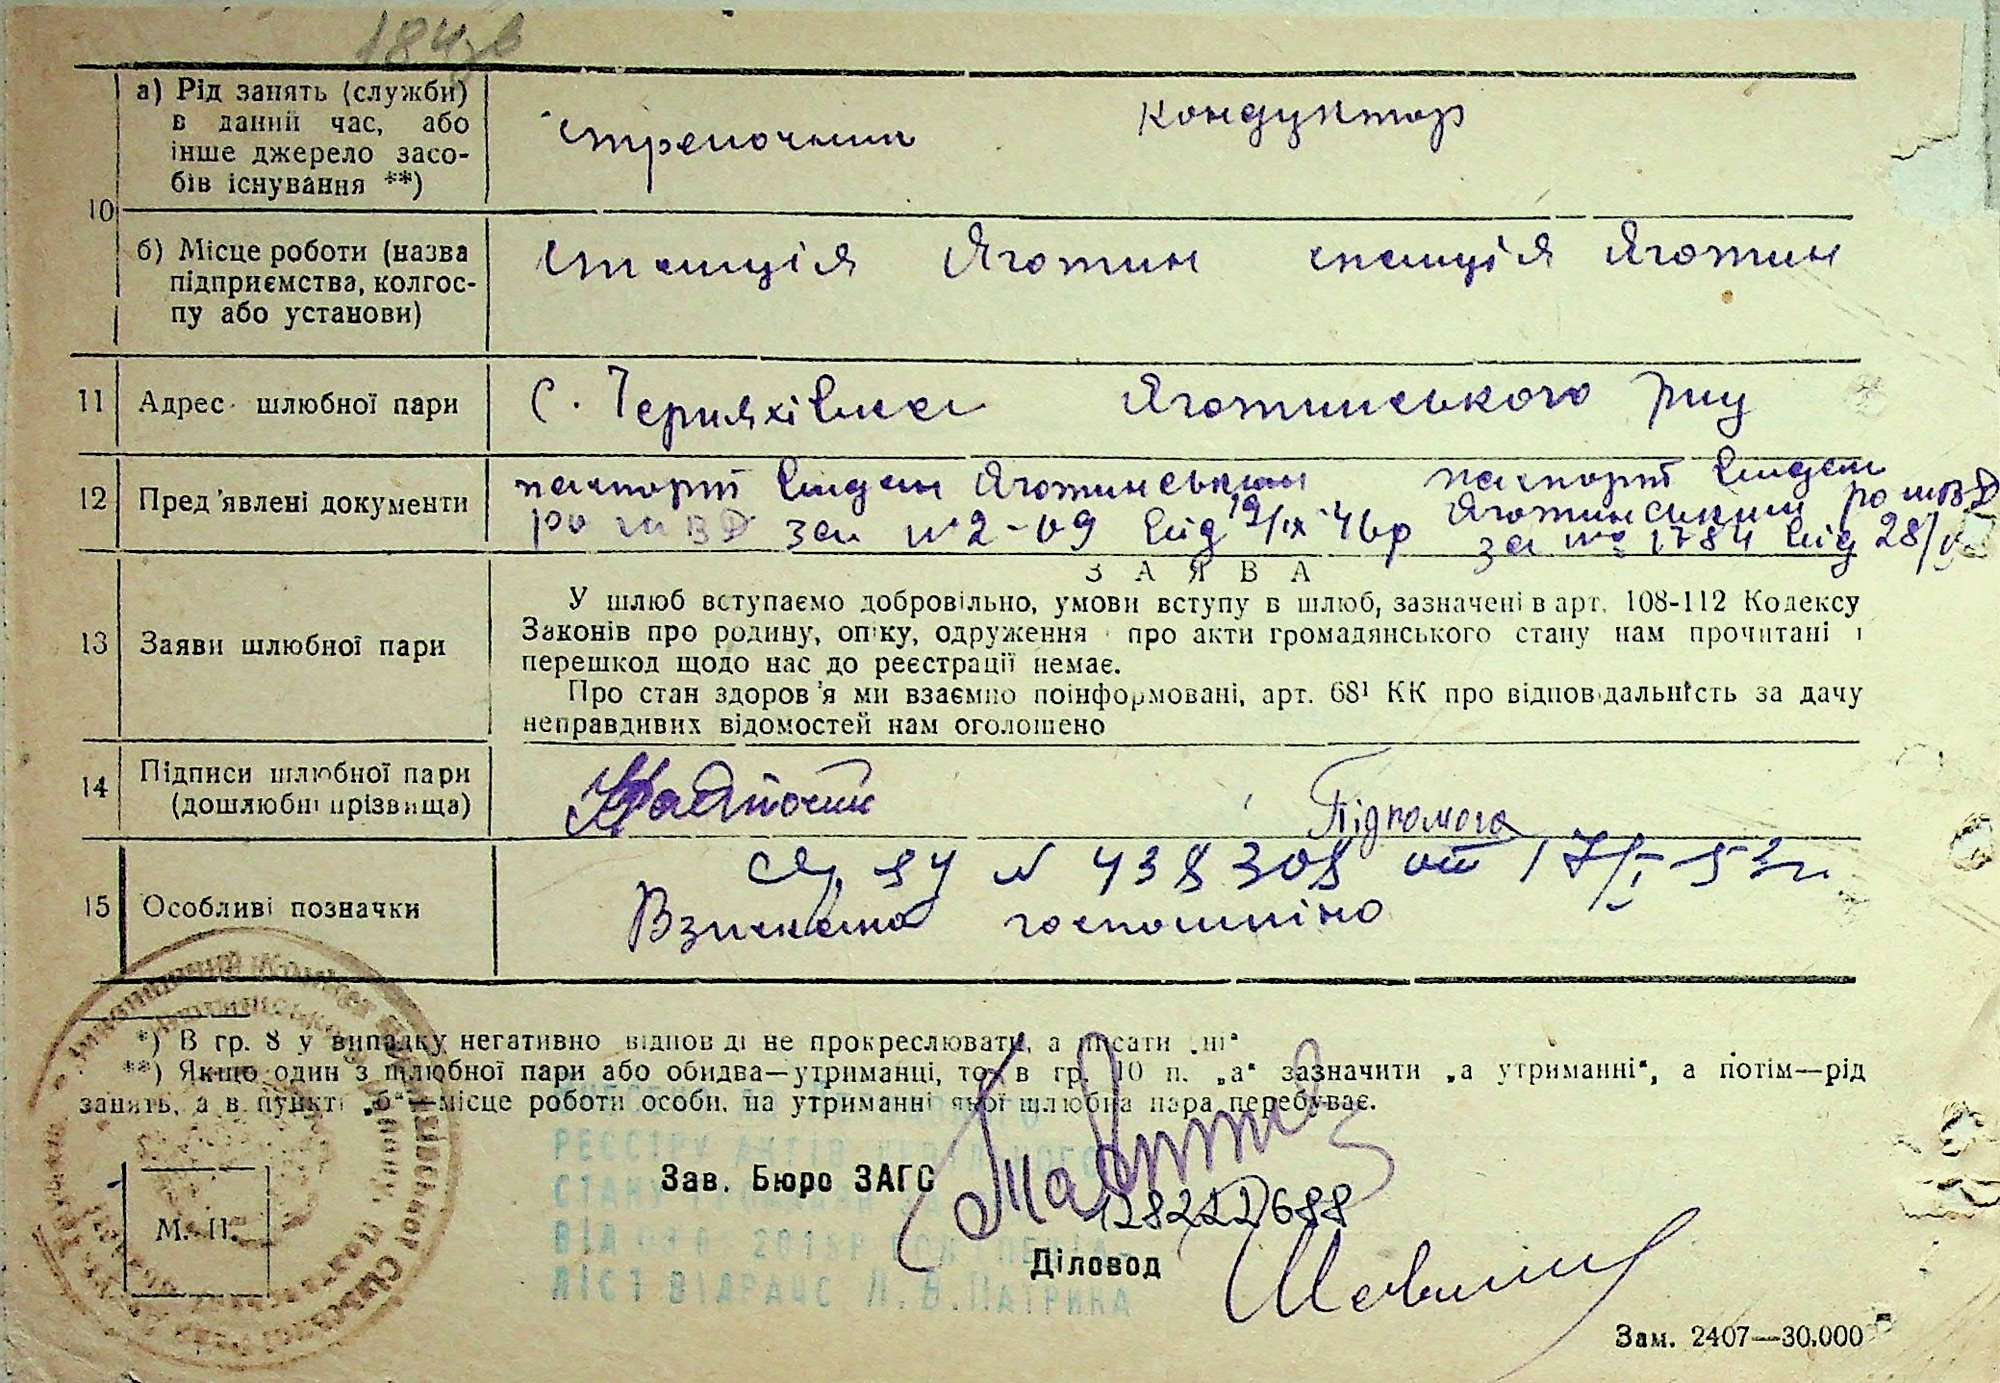 184зв
а) Рід занять (служби)
в даний час, або
інше джерело засо-
бів існування **)
стрелочник кондуктор
10
б) Місце роботи (назва
підприємства, колгос-
пу або установи)
станція Яготин станція Яготин
11 Адрес шлюбної пари
с. Черняхівка Яготинського р-ну
12 Пред'явлені документи
паспорт видан Яготинським
ро МВД за № 2-09 від 19/ІХ 46р
паспорт видан
Яготинським ро МВД
за № 1784 від 28/
З А Я В А
13 Заяви шлюбної пари
У шлюб вступаємо добровільно, умови вступу в шлюб, зазначені в арт. 108-112 Кодексу
Законів про родину, опіку, одруження і про акти громадянського стану нам прочитані і
перешкод щодо нас до реєстрації немає.
Про стан здоров'я ми взаємно поінформовані, арт. 68¹ КК про відповідальність за дачу
неправдивих відомостей нам оголошено
14 Підписи шлюбної пари
(дошлюбні прізвища)
Підпомога
15 Особливі позначки
№ 438308 от 17/I-53г.
Взискано госпошліно
*) В гр. 8 у випадку негативно відповіді не прокреслювати, а писати „ні“
**) Якщо один з шлюбної пари або обидва—утриманці, то в гр. 10 п. „а“ зазначити „а утриманні“, а потім—рід
занять, а в пункті „б“—місце роботи особи, на утриманні якої шлюбна пара перебуває.
РЕЄСТРУ АКТІВ ЦИВІЛЬНОГО
Зав. Бюро ЗАГС
СТАНУ
128222688
М. П.
ВІД 2015Р
Діловод
ЛІСТ ВІДРАЦС Л.В.ПАТРИКА
Зам. 2407—30.000